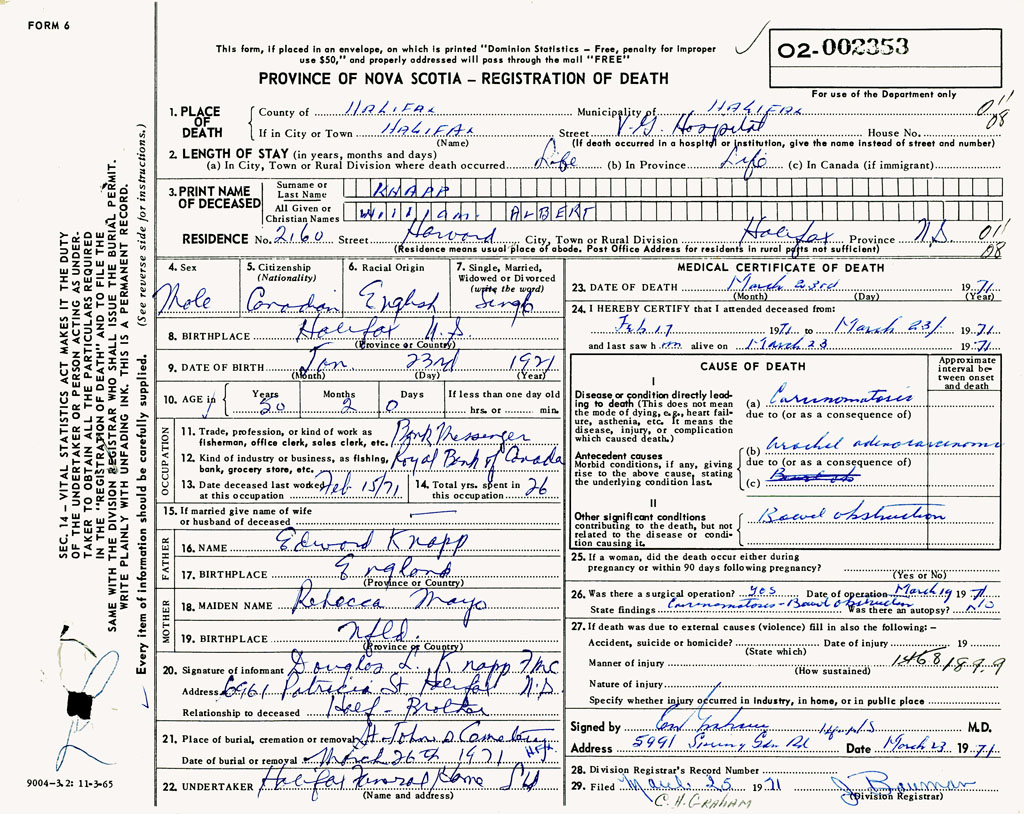 FORM 6
This form, if placed in an envelope, on which is printed "Dominion Statistics – Free, penalty for improper
use $50," and properly addressed will pass through the mail "FREE"
02-002353
For use of the Department only
PROVINCE OF NOVA SCOTIA – REGISTRATION OF DEATH
1. PLACE OF DEATH County of HALIFAX Municipality of HALIFAX 011
If in City or Town HALIFAX Street V.G. Hospital House No. 08
(Name) (If death occurred in a hospital or institution, give the name instead of street and number)
2. LENGTH OF STAY (in years, months and days)
(a) In City, Town or Rural Division where death occurred Life (b) In Province Life (c) In Canada (if immigrant)
3. PRINT NAME OF DECEASED Surname or Last Name KNAPP
All Given or Christian Names William ALBERT
RESIDENCE No. 2160 Street Harvard City, Town or Rural Division Halifax Province N.S. 011
08
(Residence means usual place of abode. Post Office Address for residents in rural parts not sufficient)
4. Sex Male
5. Citizenship (Nationality) Canadian
6. Racial Origin English
7. Single, Married, Widowed or Divorced (write the word) Single
8. BIRTHPLACE Halifax N.S.
(Province or Country)
9. DATE OF BIRTH Jan. 23rd 1921
(Month) (Day) (Year)
10. AGE in Years 50 Months 2 Days 0 If less than one day old hrs. or min.
OCCUPATION
11. Trade, profession or kind of work as fisherman, office clerk, sales clerk, etc. Bank Messenger
12. Kind of industry or business, as fishing, bank, grocery store, etc. Royal Bank of Canada
13. Date deceased last worked at this occupation Feb 15/71
14. Total yrs. spent in this occupation 26
15. If married give name of wife or husband of deceased —
FATHER
16. NAME Edward Knapp
17. BIRTHPLACE England
(Province or Country)
MOTHER
18. MAIDEN NAME Rebecca Mayo
19. BIRTHPLACE Nfld.
(Province or Country)
20. Signature of informant Douglas L. Knapp
Address 6961 Patricia St Halifax N.S.
Relationship to deceased Half-Brother
21. Place of burial, cremation or removal St. John's Cemetery HFX
Date of burial or removal March 26th 1971
22. UNDERTAKER Halifax Funeral Home
(Name and address)
MEDICAL CERTIFICATE OF DEATH
23. DATE OF DEATH March 23rd 1971
(Month) (Day) (Year)
24. I HEREBY CERTIFY that I attended deceased from:
Feb 17 1971 to March 23/ 1971
and last saw him alive on March 23 1971
CAUSE OF DEATH
Approximate interval between onset and death
I
Disease or condition directly leading to death (This does not mean the mode of dying, e.g., heart failure, asthenia, etc. It means the disease, injury, or complication which caused death.)
(a) Carcinomatosis
due to (or as a consequence of)
Antecedent causes
Morbid conditions, if any, giving rise to the above cause, stating the underlying condition last.
(b) adenocarcinoma
due to (or as a consequence of)
(c)
II
Other significant conditions contributing to the death, but not related to the disease or condition causing it.
Bowel obstruction
25. If a woman, did the death occur either during pregnancy or within 90 days following pregnancy?
(Yes or No)
26. Was there a surgical operation? yes Date of operation March 19 1971
State findings Carcinomatosis - Bowel Obstruction Was there an autopsy? No
27. If death was due to external causes (violence) fill in also the following: –
Accident, suicide or homicide? Date of injury 19
(State which)
Manner of injury
(How sustained)
Nature of injury
Specify whether injury occurred in industry, in home, or in public place
Signed by M.D.
Address 5991 Spring Gdn Rd Date March 23 1971
28. Division Registrar's Record Number
29. Filed March 25 1971 J. Bauman
(Division Registrar)
C. H. GRAHAM
SEC. 14 – VITAL STATISTICS ACT MAKES IT THE DUTY
OF THE UNDERTAKER OR PERSON ACTING AS UNDER-
TAKER TO OBTAIN ALL THE PARTICULARS REQUIRED
IN THE "REGISTRATION OF DEATH" AND TO FILE THE
SAME WITH THE DIVISION REGISTRAR WHO SHALL ISSUE THE BURIAL PERMIT.
WRITE PLAINLY WITH UNFADING INK. THIS IS A PERMANENT RECORD.
Every item of information should be carefully supplied. (See reverse side for instructions.)
9004-3.2: 11-3-65